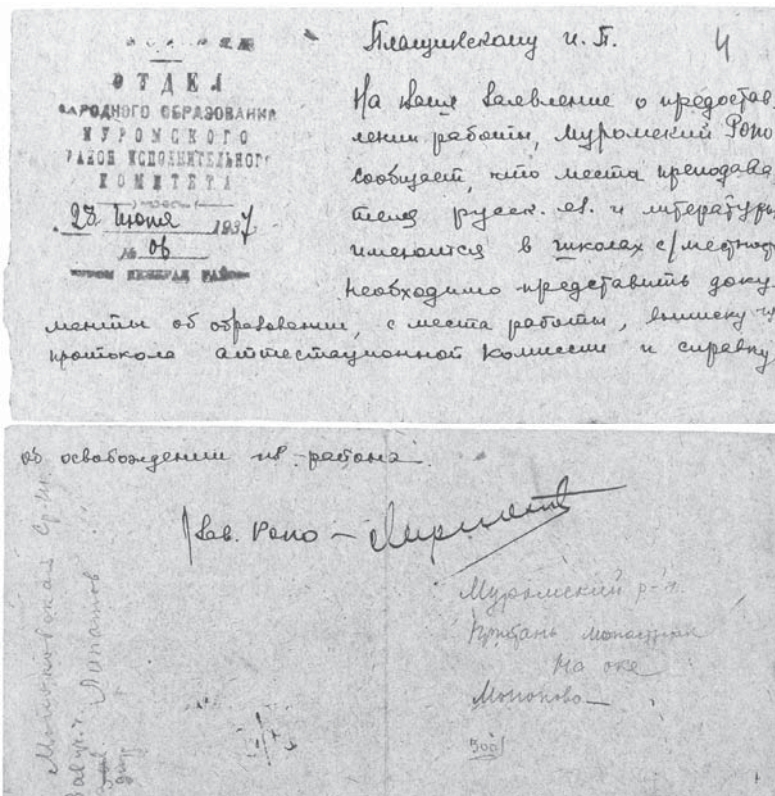 Плащинскому И. П.
4
ОТДЕЛ
НАРОДНОГО ОБРАЗОВАНИЯ
МУРОМСКОГО
РАЙОН ИСПОЛНИТЕЛЬНОГО
КОМИТЕТА
28 Июня 1937
№ 06
На Ваше Заявление о предостав
лении работы, Муромский Роно
сообщает, что места преподава
теля русск. яз. и литературы
имеются в школах с/местност
необходимо представить доку-
менты об образовании, с места работы, выписку из
протокола аттестационной комиссии и справку
об освобождении из района.
Зав. Роно –
Муромский р-н.
Пристань
На оке
Монаково
Лопатов